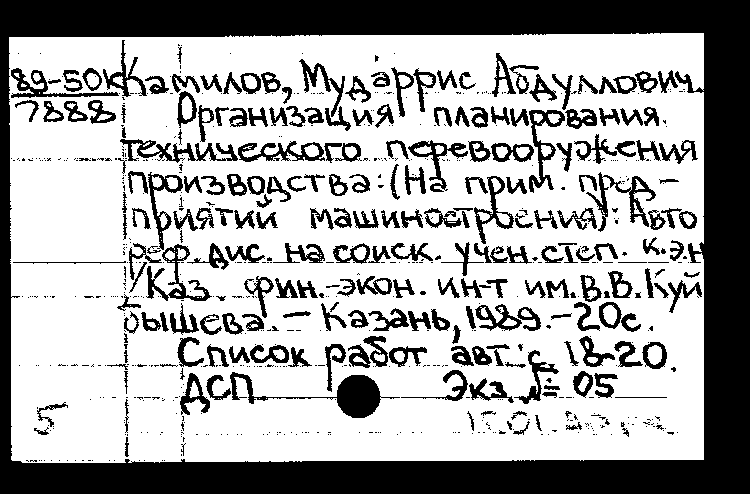 89-50к Камилов, Мударрис Абдуллович.
7888 Организация планирования
технического перевооружения
производства: (На прим. пред-
приятий машиностроения): Авто
реф. дис. на соиск. учен. степ. к.э.н
/Каз. фин.-экон. ин-т им. В.В. Куй
бышева. — Казань, 1989. — 20с.
Список работ авт.: с. 18-20.
ДСП. Экз. № 05
5 15.01.